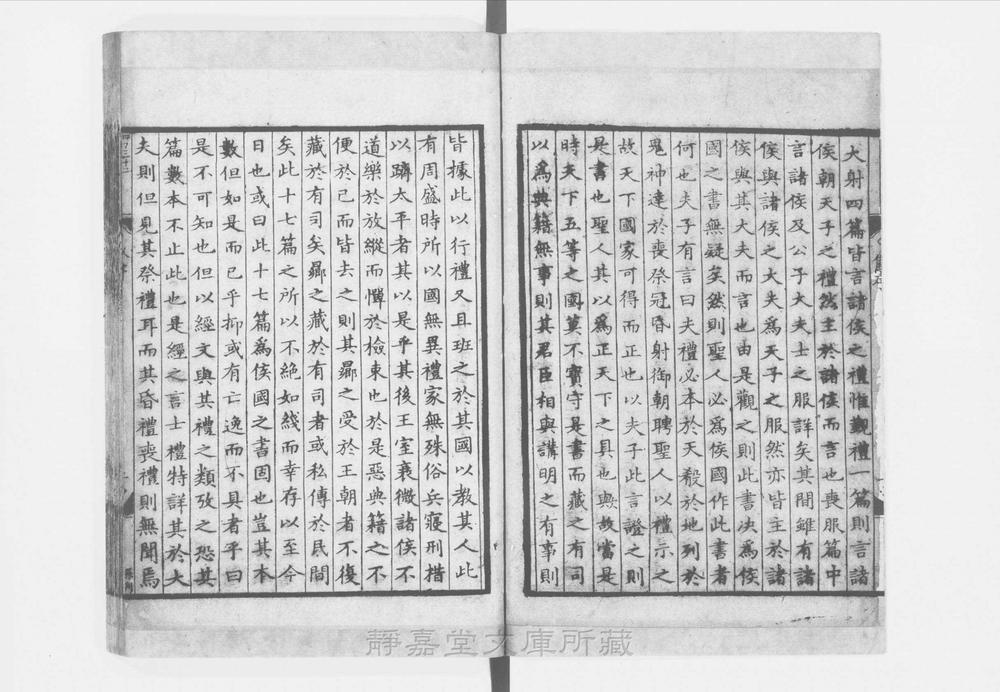 大射四篇皆言諸侯之禮惟覲禮一篇則言諸
侯朝天子之禮然主於諸侯而言也喪服篇中
言諸侯及公子大夫士之服詳矣其間雖有諸
侯與諸侯之大夫為天子之服然亦皆主於諸
侯與其大夫而言也由是觀之則此書決為侯
國之書無疑矣然則聖人必為侯國作此書者
何也夫子有言曰夫禮必本於天殽於地列於
鬼神達於喪祭冠昏射御朝聘聖人以禮示之
故天下國家可得而正也以夫子此言證之則
是書也聖人其以為正天下之具也與故當是
時天下五等之國莫不寶守是書而藏之有司
以為典籍無事則其君臣相與講明之有事則
皆據此以行禮又且班之於其國以教其人此
有周盛時所以國無異禮家無殊俗兵寢刑措
以躋太平者其以是乎其後王室衰微諸侯不
道樂於放縱而憚於檢束也於是惡典籍之不
便於已而皆去之則其曏之受於王朝者不復
藏於有司矣曏之藏於有司者或私傳於民間
矣此十七篇之所以不絶如綫而幸存以至今
日也或曰此十七篇為侯國之書固也豈其本
數但如是而已乎抑或有亡逸而不具者乎曰
是不可知也但以經文與其禮之類攷之恐其
篇數本不止此也是經之言士禮特詳其於大
夫則但見其祭禮耳而其昏禮喪禮則無聞焉
靜嘉堂文庫所藏